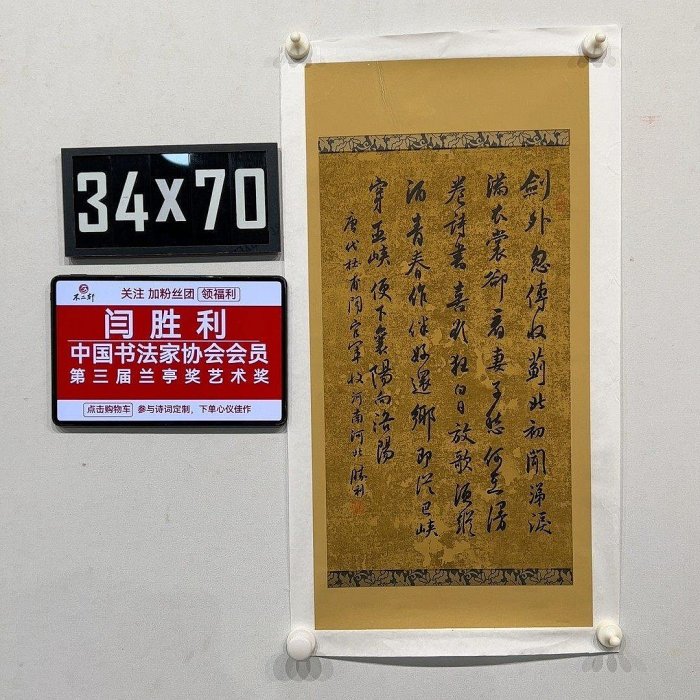 34x70
不二軒
关注 加粉丝团 领福利
闫胜利
中国书法家协会会员
第三届兰亭奖艺术奖
点击购物车 参与诗词定制，下单心仪佳作
劍外忽傳收薊北初聞涕淚
滿衣裳卻看妻子愁何在漫
卷詩書喜欲狂白日放歌須縱
酒青春作伴好還鄉即從巴峽
穿巫峽便下襄陽向洛陽
唐代杜甫聞官軍收河南河北勝利